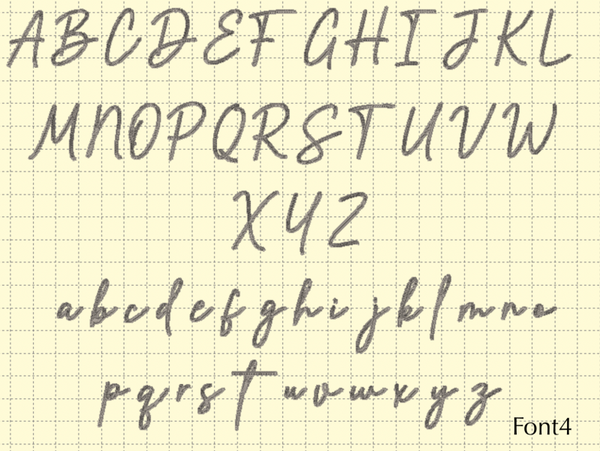 A B C D E F G H I J K L
M N O P Q R S T U V W
X Y Z
a b c d e f g h i j k l m n o
p q r s t u v w x y z
Font4